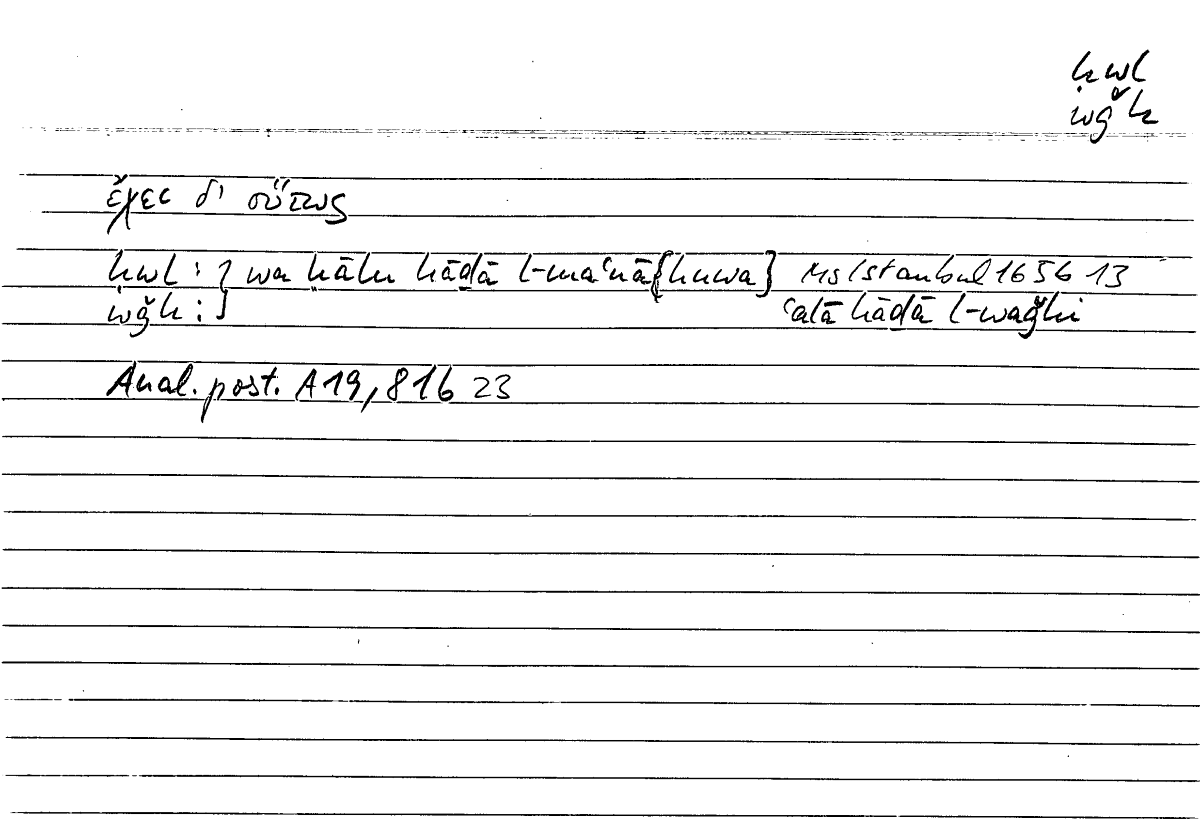 ḥwl
wǧh
ἔχει δ' οὕτως
ḥwl : } wa ḥālu hāḏā l-maʿnā {huwa} Ms Istanbul 1656 13
wǧh : } ʿalā hāḏā l-waǧhi
Anal. post. A19, 81b 23